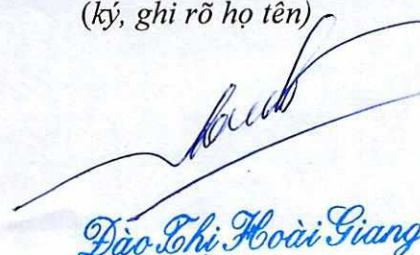 (ký, ghi rõ họ tên)
Đào Thị Hoài Giang